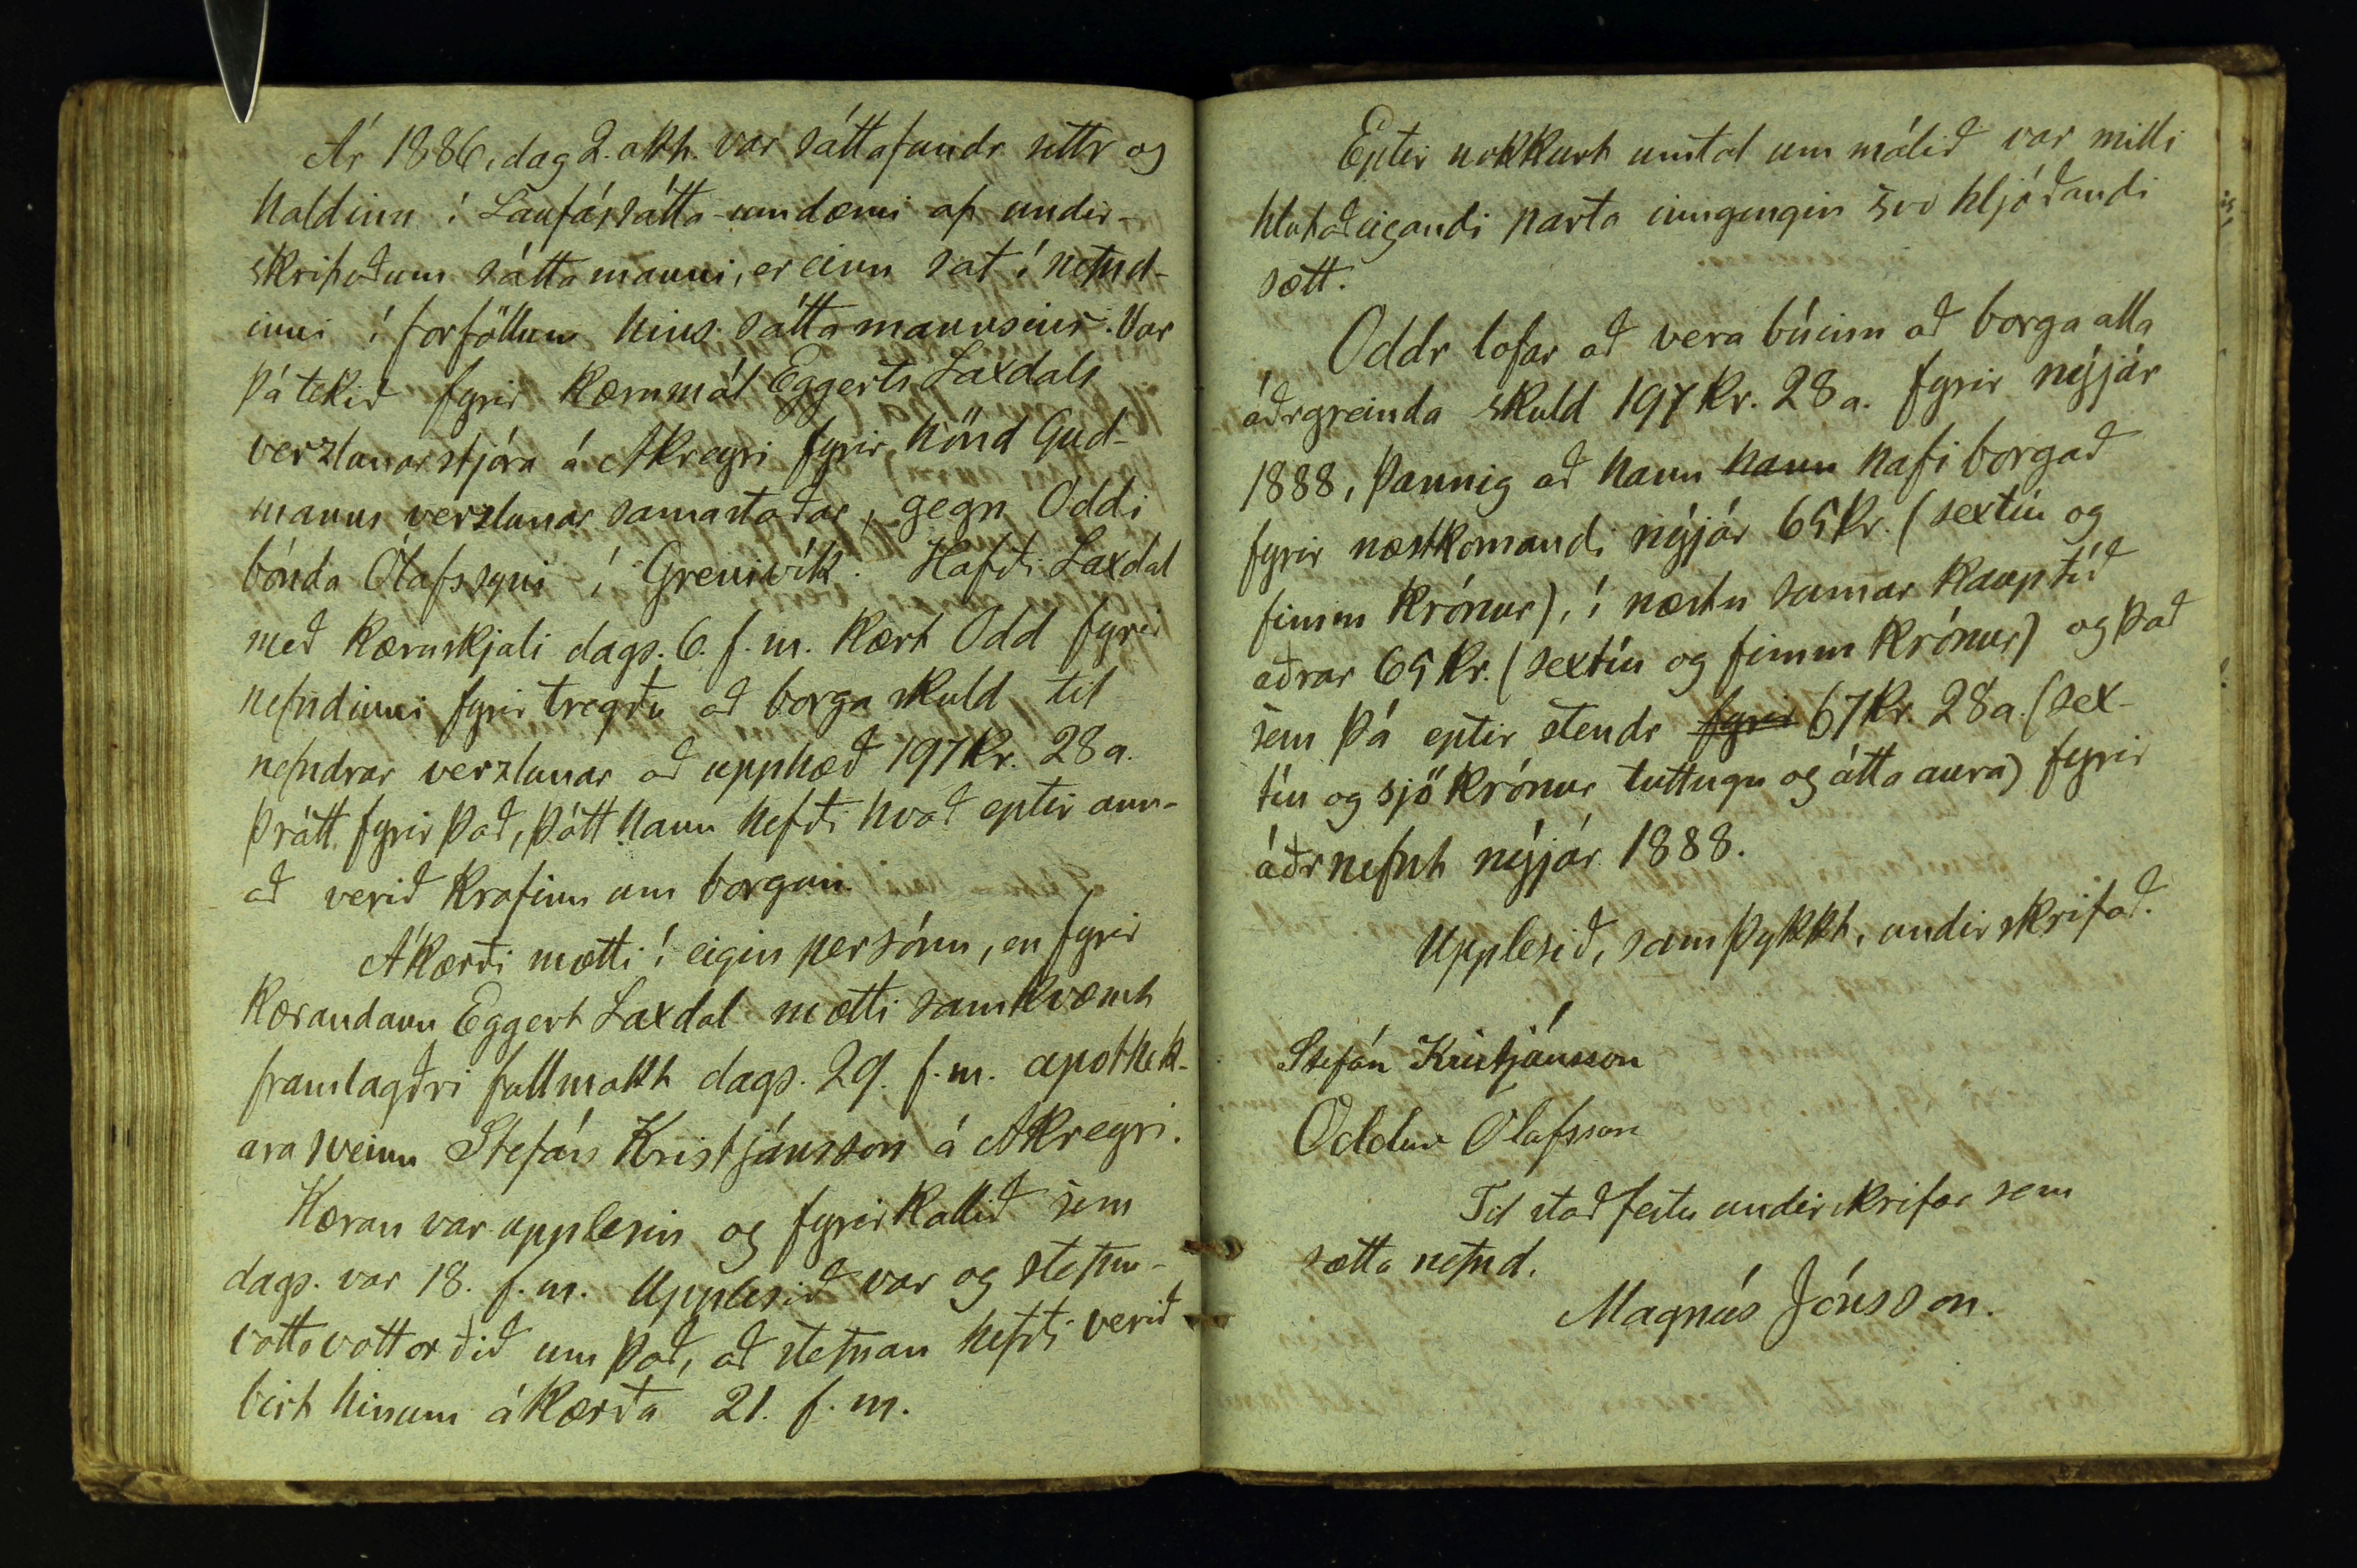 Ár 1886, dag 2. okt. var sáttafundr settr og
haldinn í Laufássátta-umdæmi af undir-
skrifuðum sáttamanni, er einn sat í nefnd-
inni í forföllum hins sáttamannsins. Var
þá tekið fyrir kærumál Eggerts Laxdals
verzlunarstjóra á Akreyri fyrir hönd Gud-
manns verzlunar samastaðar, gegn Oddi
bónda Ólafssyni í Grenivík. Hafði Laxdal
með kæruskjali dags. 6. f. m. kært Odd fyrir
nefndinni fyrir tregðu að borga skuld til
nefndrar verzlunar að upphæð 197 kr. 28 a.
þrátt fyrir það, þótt hann hefði hvað eptir ann-
að verið krafinn um borgun.
Ákærði mætti í eigin persónu, en fyrir
kærandann Eggert Laxdal mætti samkvæmt
framlagðri fullmakt dags. 29. f. m. apothek-
ara sveinn Stefán Kristjánsson á Akreyri.
Kæran var upplesin og fyrirkallið sem
dags. var 18. f. m. Upplesið var og stefnu-
vottavottorðið um það, að stefnan hefði verið
birt hinum ákærða 21. f. m.
Eptir nokkurt umtal um málið var milli
hlutaðeigandi parta inngengin svo hljóðandi
sætt.
Oddr lofar að vera búinn að borga alla
áðrgreinda skuld 197 kr. 28 a. fyrir nýjár
1888, þannig að hann hann hafi borgað
fyrir næstkomandi nýjár 65 kr. (sextíu og
fimm krónur), í næstu sumar kauptíð
aðrar 65 kr. (sextíu og fimm krónur) og það
sem þá eptir stendr fyrir 67 kr. 28 a. (sex-
tíu og sjö krónur tuttugu og átta aura) fyrir
áðrnefnt nýjár 1888.
Upplesið, samþykkt, undirskrifað.
Stefán Kristjánsson
Oddur Ólafsson
Til staðfestu undirskrifar sem
sætta nefnd.
Magnús Jónsson.